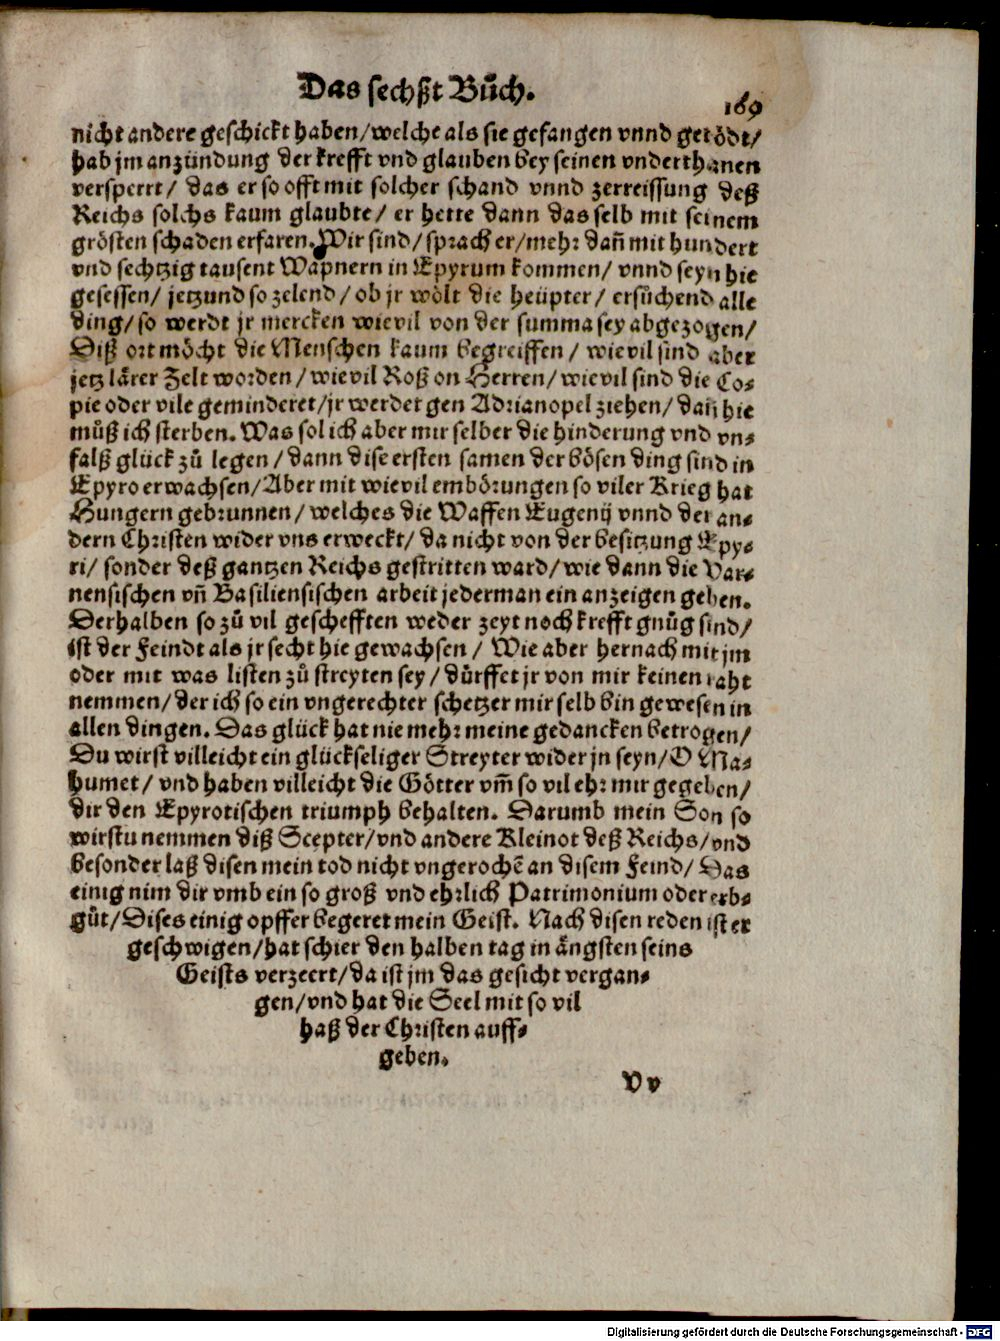 Das sechßt Bůch.
169
nicht andere geschickt haben/welche als sie gefangen vnnd getödt/
hab jm anzündung der krefft vnd glauben bey seinen vnderthanen
versperrt/ das er so offt mit solcher schand vnnd zerreissung deß
Reichs solchs kaum glaubte/ er hette dann das selb mit seinem
grösten schaden erfaren. Wir sind/ sprach er/mehr dañ mit hundert
vnd sechtzig tausent Wapnern in Epyrum kommen/ vnnd seyn hie
gesessen/ jetzund so zelend/ ob jr wölt die heüpter/ ersůchend alle
ding/ so werdt jr mercken wievil von der summa sey abgezogen/
Diß ort möcht die Menschen kaum begreiffen/ wievil sind aber
jetz lärer Zelt worden/wievil Roß on Herren/wievil sind die Co⸗
pie oder vile geminderet/jr werdet gen Adrianopel ziehen/dañ hie
můß ich sterben. Was sol ich aber mir selber die hinderung vnd vn⸗
falß glück zů legen/dann dise ersten samen der bösen ding sind in
Epyro erwachsen/Aber mit wievil embörungen so viler Krieg hat
Hungern gebrunnen/welches die Waffen Eugenij vnnd der an⸗
dern Christen wider vns erweckt/da nicht von der besitzung Epy⸗
ri/ sonder deß gantzen Reichs gestritten ward/wie dann die Var⸗
nensischen vñ Basiliensischen arbeit jederman ein anzeigen geben.
Derhalben so zů vil geschefften weder zeyt noch krefft gnůg sind/
ist der Feindt als jr secht hie gewachsen/ Wie aber hernach mit jm
oder mit was listen zů streyten sey/dürffet jr von mir keinen raht
nemmen/der ich so ein vngerechter schetzer mir selb bin gewesen in
allen dingen. Das glück hat nie mehr meine gedancken betrogen/
Du wirst villeicht ein glückseliger Streyter wider jn seyn/O Ma⸗
humet/ vnd haben villeicht die Götter vm̃ so vil ehr mir gegeben/
dir den Epyrotischen triumph behalten. Darumb mein Son so
wirstu nemmen diß Scepter/vnd andere Kleinot deß Reichs/vnd
besonder laß disen mein tod nicht vngerochẽ an disem Feind/ Das
einig nim dir vmb ein so groß vnd ehrlich Patrimonium oder erb⸗
gůt/Dises einig opffer begeret mein Geist. Nach disen reden ist er
geschwigen/hat schier den halben tag in ängsten seins
Geists verzeert/da ist jm das gesicht vergan⸗
gen/vnd hat die Seel mit so vil
haß der Christen auff⸗
geben.
Vv
Digitalisierung gefördert durch die Deutsche Forschungsgemeinschaft - DFG